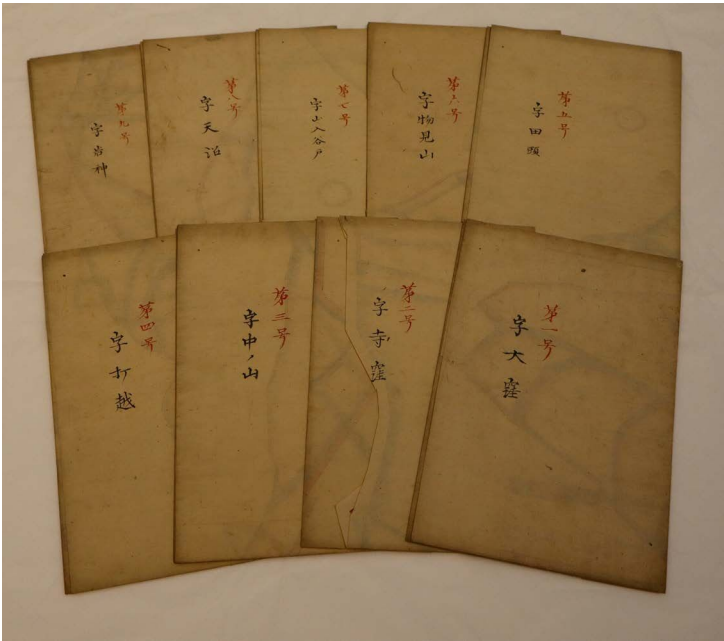 第五号
字田頭
第六号
字物見山
第七号
字山入谷戸
第八号
字天沼
第九号
字岩神
第一号
字大窪
第二号
字寺窪
第三号
字中ノ山
第四号
字打越